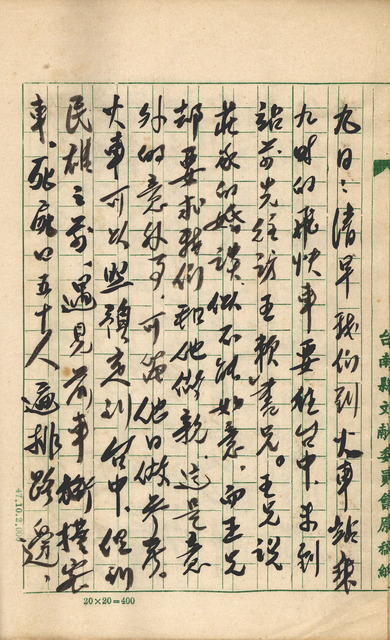 九日：清早我们到火車站乘
九时的飛快車要往台中。未到
站前先往訪王頼書兄。王兄説
莊家的婚談似不能如意。而王兄
却要求我们和他做親。这是意
外的意外事。可為他日做参考。
火車可以照預定到台中。但到
民雄之前。遇見前車衝撞客
車、死 口五十人 排路邊、
台南縣文獻委員會原稿紙
47.10.2.00
20×20=400